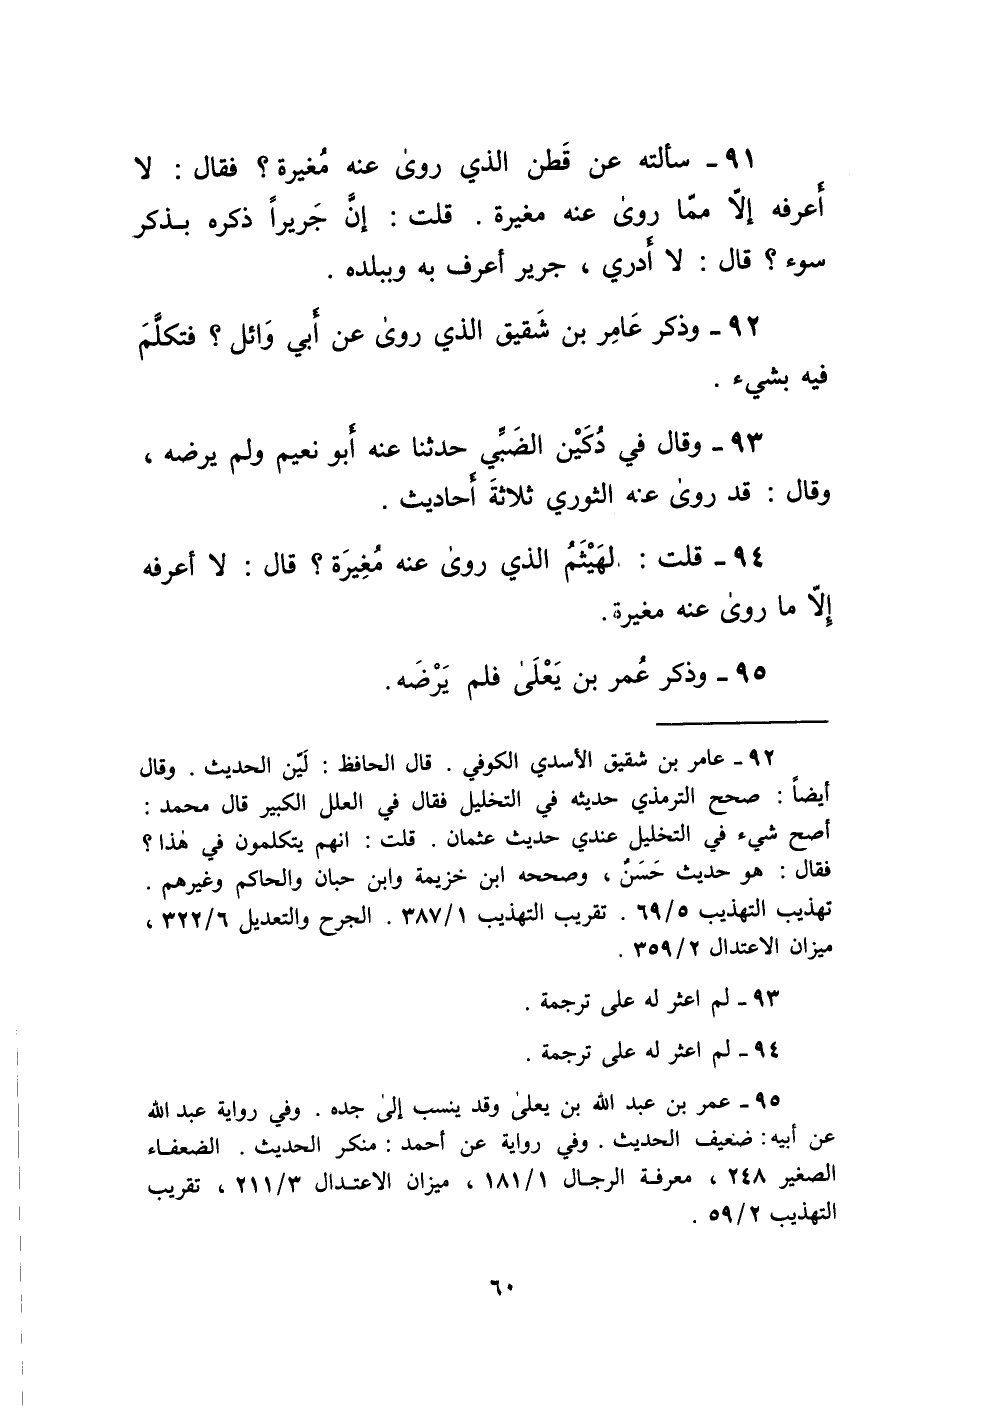 ٩١ ـ سألته عن قَطن الذي روىٰ عنه مُغيرة ؟ فقال : لا
أَعرفه إلاّ ممّا روىٰ عنه مغيرة . قلت : إنَّ جَريراً ذكره بـذكر
سوء ؟ قال : لا أَدري ، جرير أعرف به وببلده .
٩٢ ـ وذكر عَامِر بن شَقيق الذي روىٰ عن أَبي وَائل ؟ فتكلَّمَ
فيه بشيء .
٩٣ ـ وقال في دُكَيْن الضَبِّي حدثنا عنه أَبو نعيم ولم يرضه ،
وقال : قد روىٰ عنه الثوري ثلاثةَ أَحاديث .
٩٤ ـ قلت : لهَيْثَمُ الذي روىٰ عنه مُغِيرَة ؟ قال : لا أعرفه
إِلاّ ما روىٰ عنه مغيرة .
٩٥ ـ وذكر عُمر بن يَعْلَىٰ فلم يَرْضَه .
٩٢ ـ عامر بن شقيق الأسدي الكوفي . قال الحافظ : لَيّن الحديث . وقال
أيضاً : صحح الترمذي حديثه في التخليل فقال في العلل الكبير قال محمد :
أصح شيء في التخليل عندي حديث عثمان . قلت : انهم يتكلمون في هٰذا ؟
فقال : هو حديث حَسَنٌ ، وصححه ابن خزيمة وابن حبان والحاكم وغيرهم .
تهذيب التهذيب ٦٩/٥ . تقريب التهذيب ٣٨٧/١ . الجرح والتعديل ٣٢٢/٦ ،
ميزان الاعتدال ٣٥٩/٢ .
٩٣ ـ لم اعثر له على ترجمة .
٩٤ ـ لم اعثر له على ترجمة .
٩٥ ـ عمر بن عبد الله بن يعلىٰ وقد ينسب إلىٰ جده . وفي رواية عبد الله
عن أبيه : ضعيف الحديث . وفي رواية عن أحمد : منكر الحديث . الضعفـاء
الصغير ٢٤٨ ، معرفـة الرجـال ١٨١/١ ، ميزان الاعتـدال ٢١١/٣ ، تقريب
التهذيب ٥٩/٢ .
٦٠